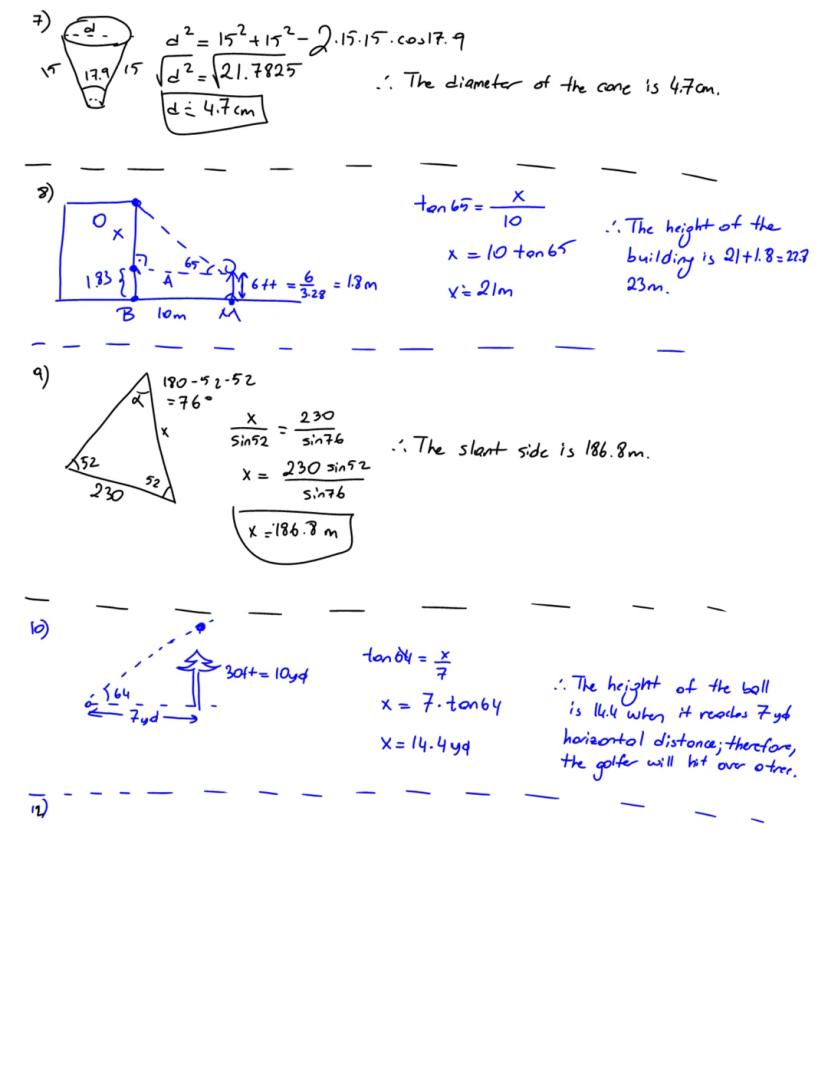 7)
d
15 17.9 15
d² = 15² + 15² - 2·15·15·cos17.9
√d² = √21.7825
d ≐ 4.7cm
∴ The diameter of the cone is 4.7cm.
8)
O
x
65
1.83
A
6ft = 6/3.28 = 1.8m
B 10m M
tan65 = x/10
x = 10 tan65
x ≐ 21m
∴ The height of the
building is 21+1.8=22.8
23m.
9)
180-52-52
=76°
α
x
52
52
230
x/sin52 = 230/sin76
x = 230 sin52/sin76
x = 186.8 m
∴ The slant side is 186.8m.
10)
30ft = 10yd
64
7yd
tan64 = x/7
x = 7·tan64
x = 14.4yd
∴ The height of the ball
is 14.4 when it reaches 7yd
horizontal distance; therefore,
the golfer will hit over a tree.
12)